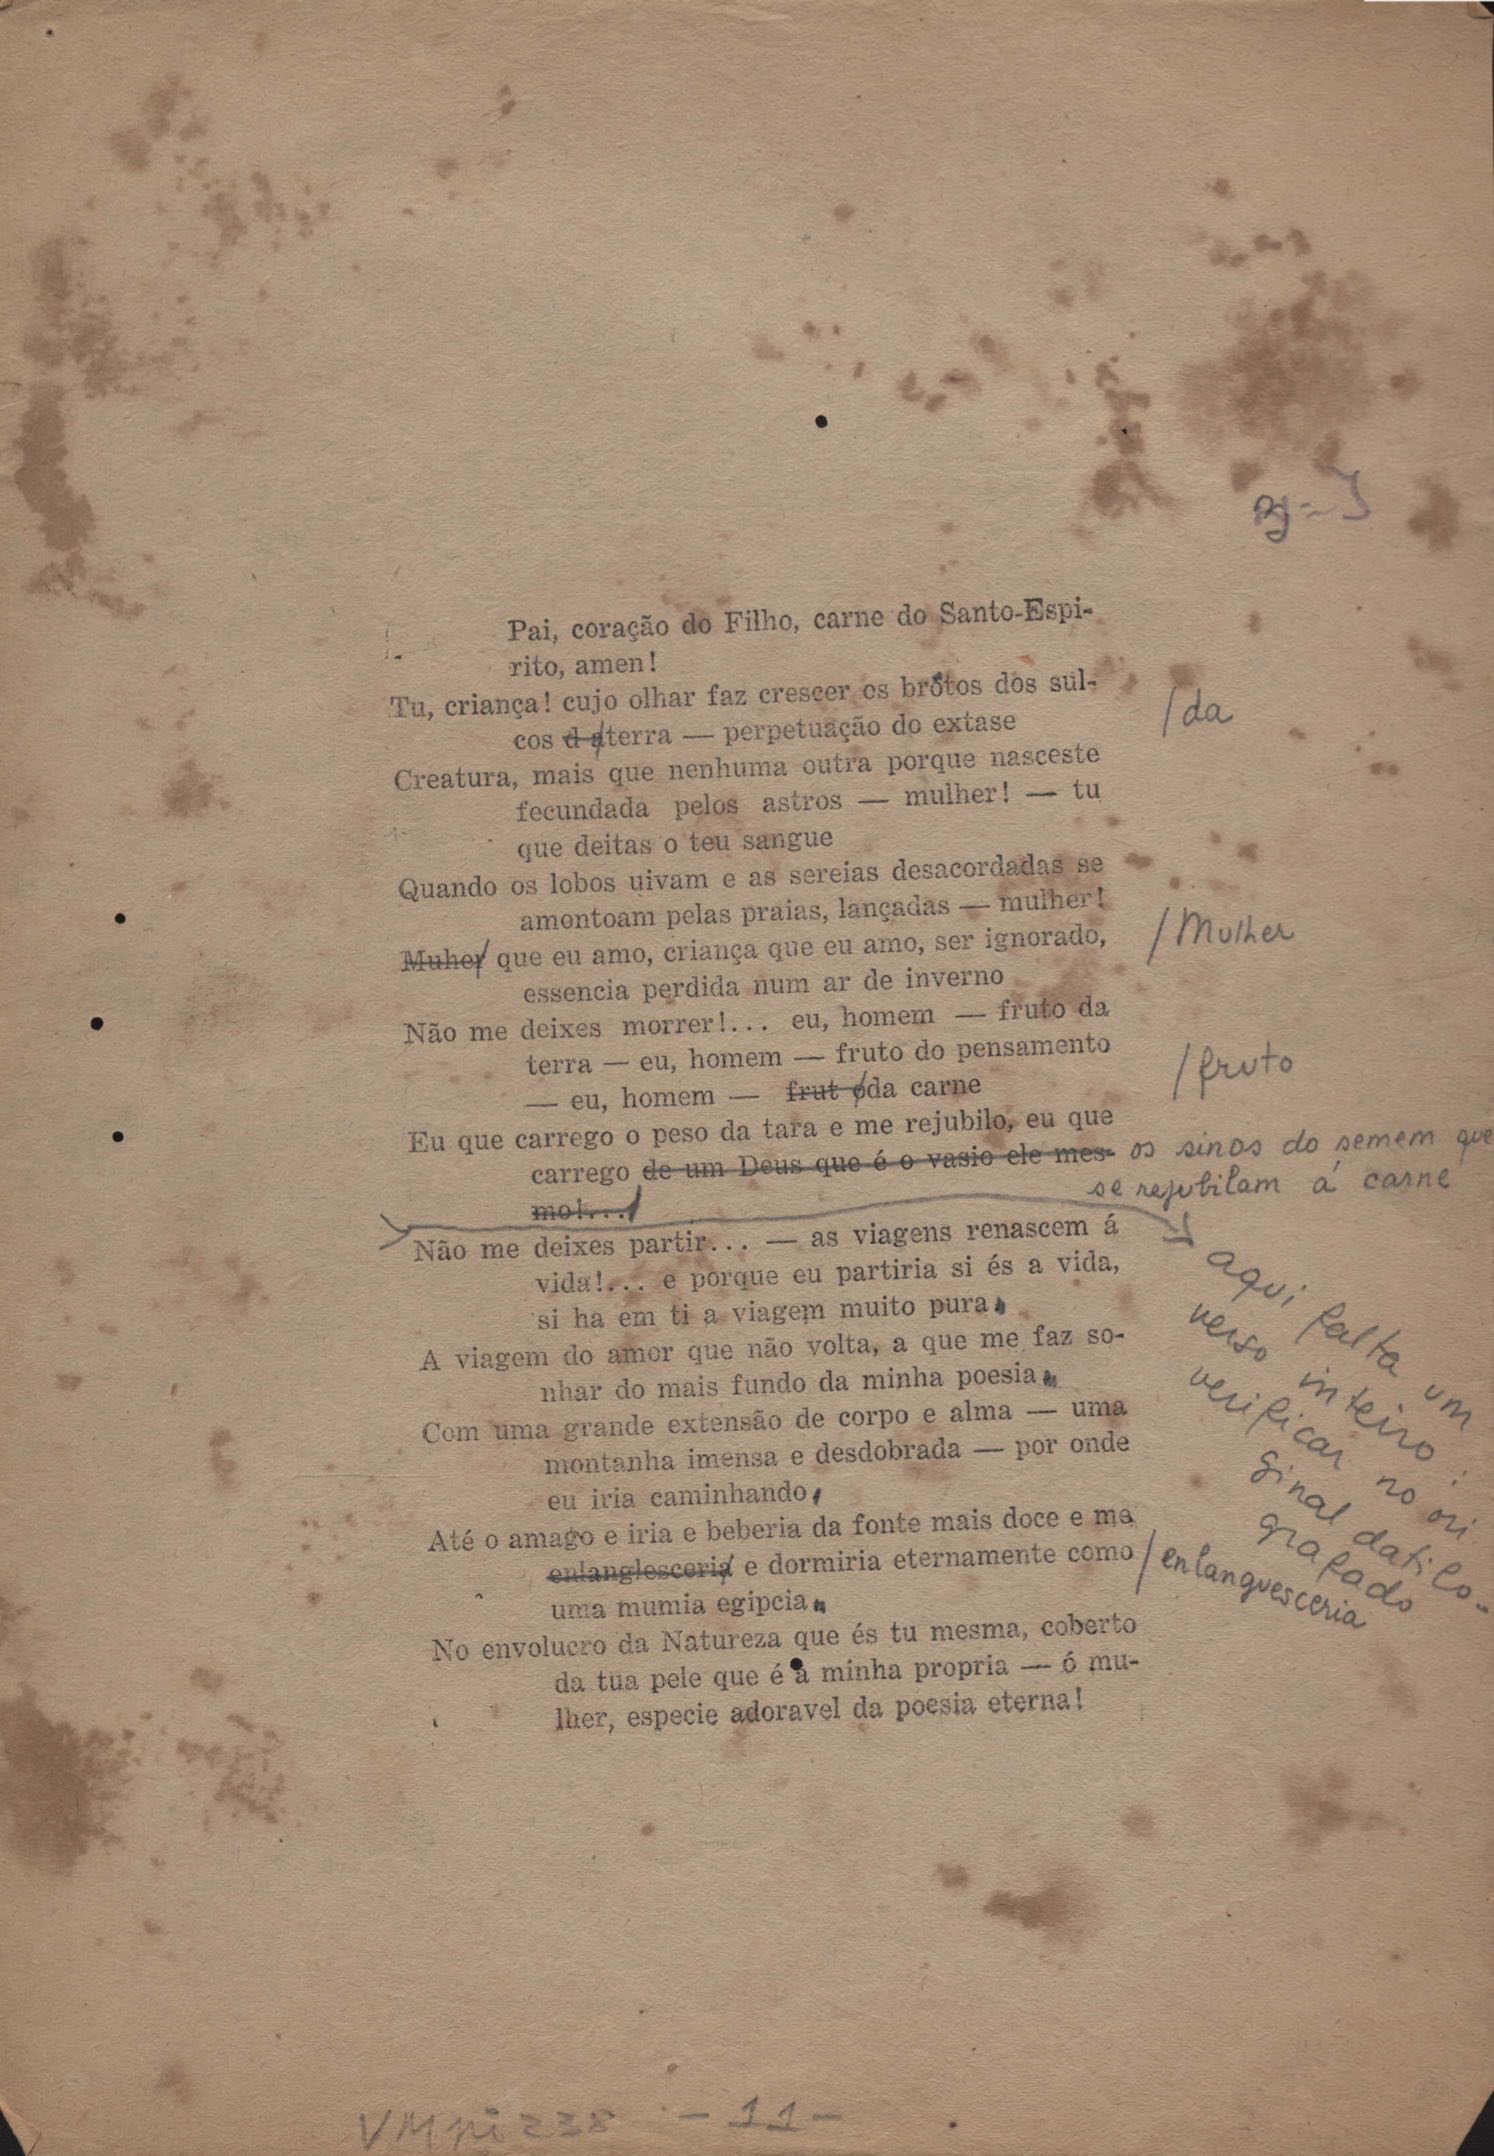 Pai, coração do Filho, carne do Santo-Espi-
rito, amen!
Tu, criança! cujo olhar faz crescer os brotos dos sul-
cos d a terra — perpetuação do extase
/da
Creatura, mais que nenhuma outra porque nasceste
fecundada pelos astros — mulher! — tu
que deitas o teu sangue
Quando os lobos uivam e as sereias desacordadas se
amontoam pelas praias, lançadas — mulher!
Muher que eu amo, criança que eu amo, ser ignorado,
/Mulher
essencia perdida num ar de inverno
Não me deixes morrer!... eu, homem — fruto da
terra — eu, homem — fruto do pensamento
— eu, homem — frut oda carne
/fruto
Eu que carrego o peso da tara e me rejubilo, eu que
carrego de um Deus que é o vasio ele mes-
mo!...
os sinos do semem que
se rejubilam á carne
Não me deixes partir... — as viagens renascem á
vida!... e porque eu partiria si és a vida,
si ha em ti a viagem muito pura
A viagem do amor que não volta, a que me faz so-
nhar do mais fundo da minha poesia
Com uma grande extensão de corpo e alma — uma
montanha imensa e desdobrada — por onde
eu iria caminhando,
Até o amago e iria e beberia da fonte mais doce e me
enlanglesceria e dormiria eternamente como
/enlanguesceria
uma mumia egipcia
No envolucro da Natureza que és tu mesma, coberto
da tua pele que é a minha propria — ó mu-
lher, especie adoravel da poesia eterna!
aqui falta um
verso inteiro.
verificar no ori
ginal datilo-
grafado
VMpi238 - 11 -